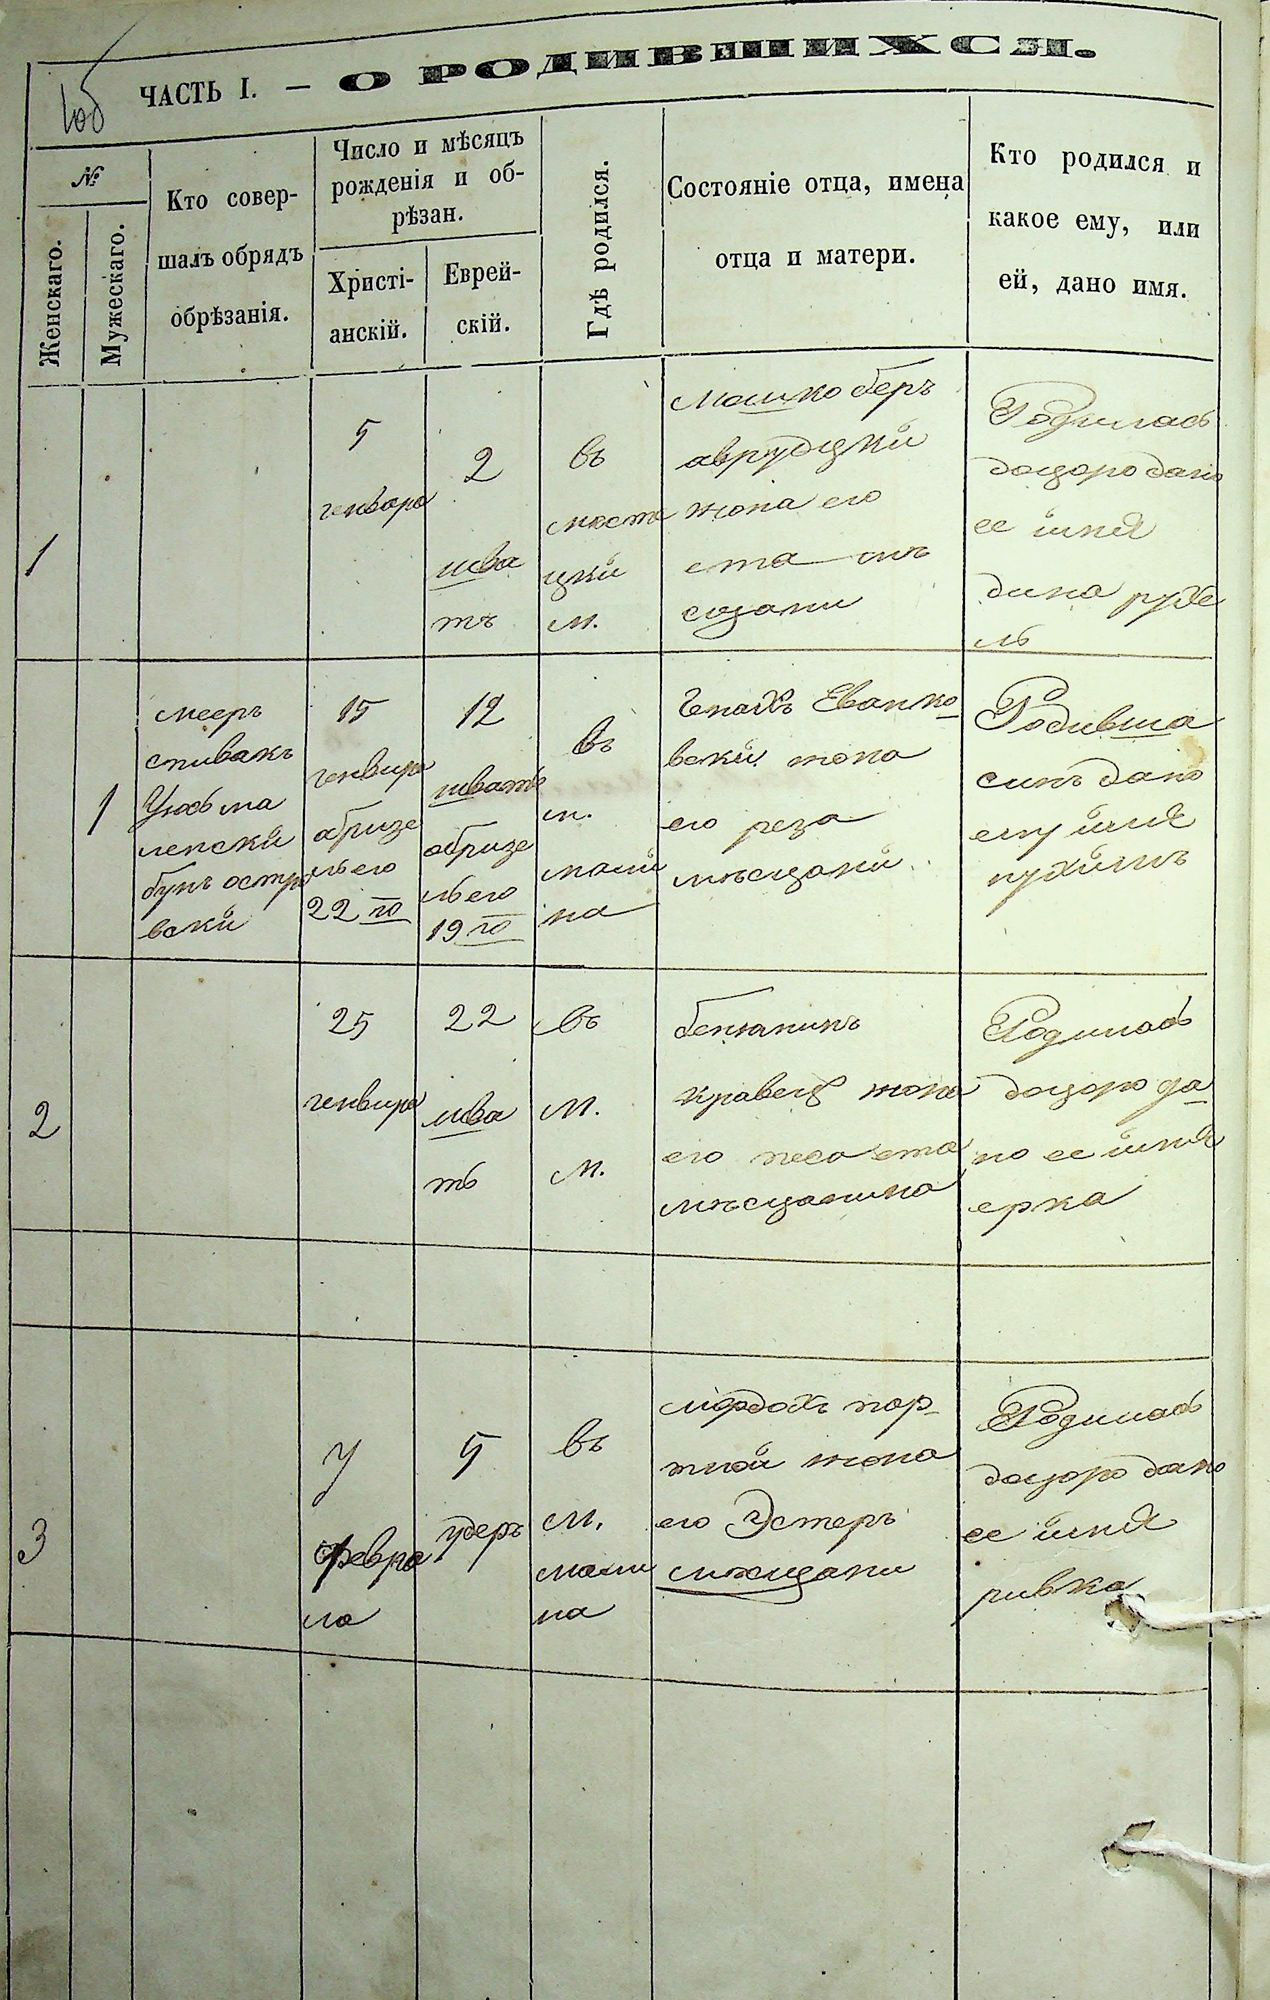 1об
ЧАСТЬ I. — О РОДИВШИХСЯ.
№
Женскаго.
Мужескаго.
Кто совер-
шалъ обрядъ
обрѣзанія.
Число и мѣсяцъ
рожденія и об-
рѣзан.
Христі-
анскій.
Еврей-
скій.
Гдѣ родился.
Состояніе отца, имена
отца и матери.
Кто родился и
какое ему, или
ей, дано имя.
1
5
генвара
2
шва
тъ
въ
м.
мошко беръ
аврудцкй
жона его
Родилась
доцоро дано
ее імня
дина рухе
ль
1
мееръ
спивакъ
бунъ остро
вскй
15
генвира
абризе
ль его
22 го
12
шватъ
абризе
ль его
19 го
въ
м.
на
Еванко
вскй жона
его реза
мѣсцанй
Родивша
синъ дано
ему імня
нухімъ
2
25
генвира
22
шва
тъ
въ
м.
м.
бенюминъ
кравец жона
его песа
мѣсцанина
Родилась
доцоро да
но ее імня
ерка
3
7
февра
ла
5
удеръ
въ
м.
на
мордохъ пор-
тной жона
его Эстеръ
мѣщани
Родилась
доцоро дано
ее імня
ривка